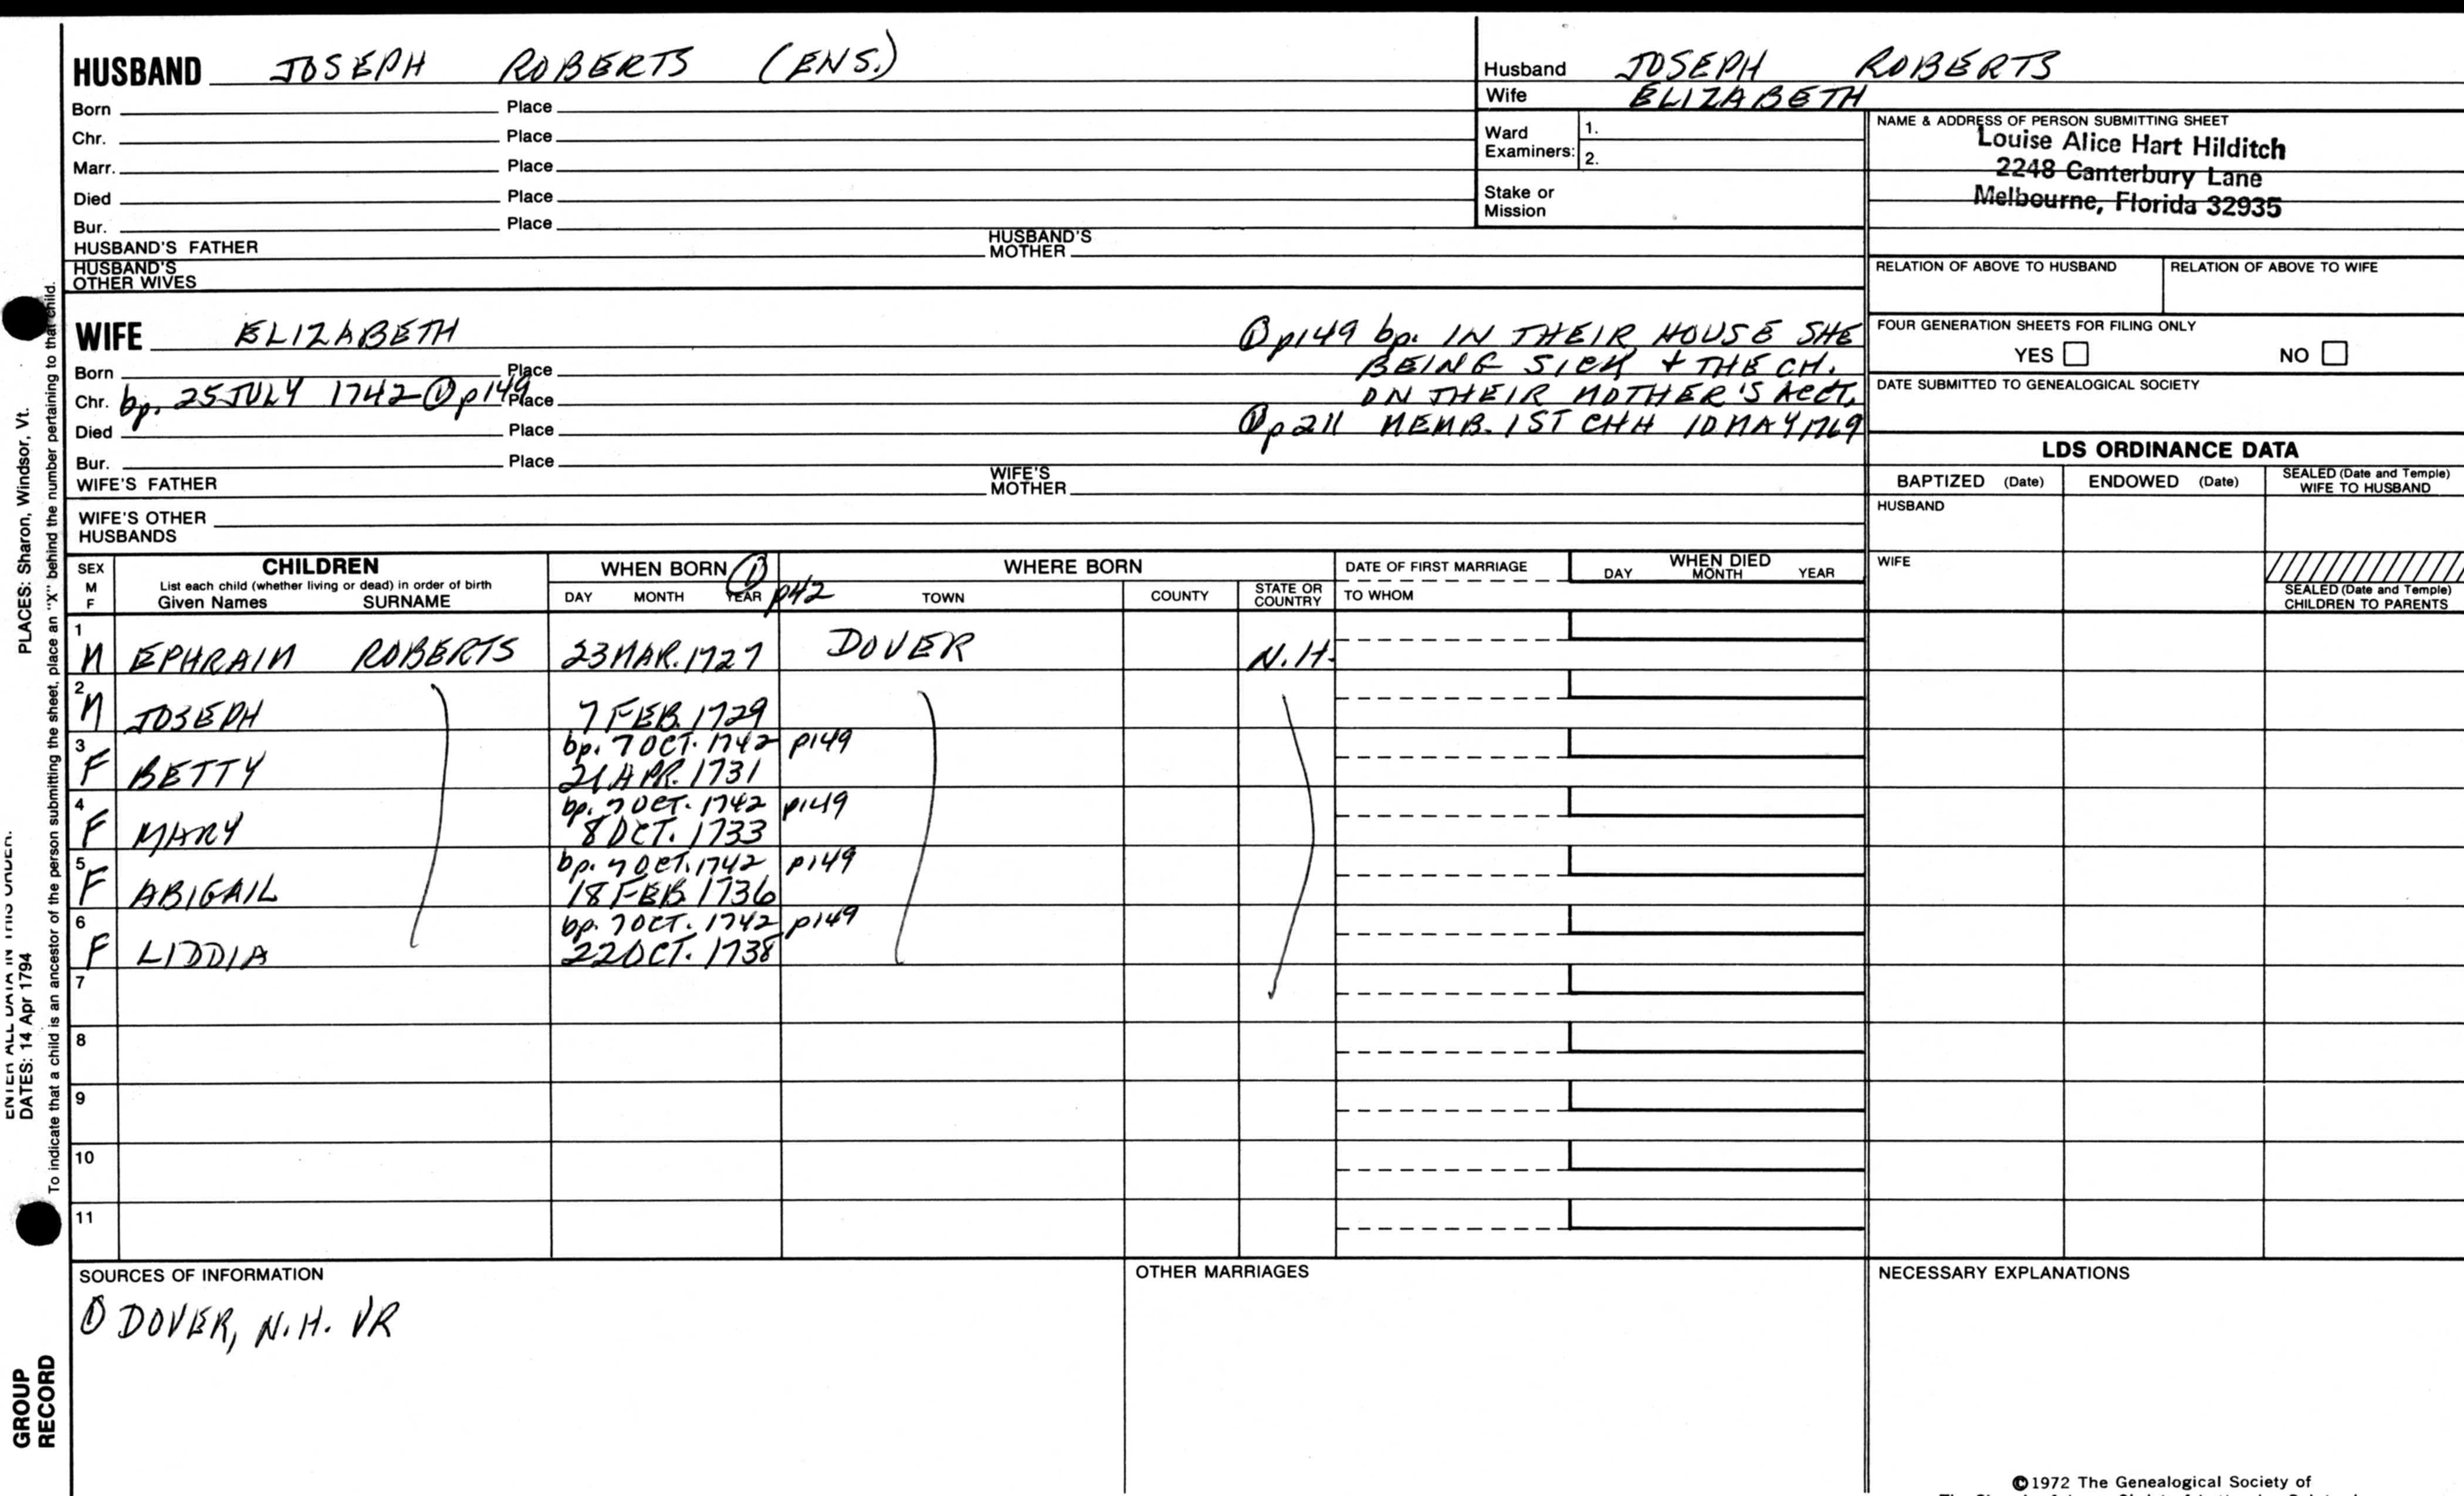 HUSBAND JOSEPH ROBERTS (ENS.)
Born Place
Chr. Place
Marr. Place
Died Place
Bur. Place
HUSBAND'S FATHER HUSBAND'S MOTHER
HUSBAND'S OTHER WIVES
Husband JOSEPH ROBERTS
Wife ELIZABETH
Ward Examiners: 1.
2.
Stake or Mission
NAME & ADDRESS OF PERSON SUBMITTING SHEET
Louise Alice Hart Hilditch
2248 Canterbury Lane
Melbourne, Florida 32935
RELATION OF ABOVE TO HUSBAND RELATION OF ABOVE TO WIFE
FOUR GENERATION SHEETS FOR FILING ONLY
YES NO
DATE SUBMITTED TO GENEALOGICAL SOCIETY
WIFE ELIZABETH
Born Place
Chr. bp. 25 JULY 1742 ① p149 Place
Died Place
Bur. Place
① p149 bp. IN THEIR HOUSE SHE
BEING SICK + THE CH.
ON THEIR MOTHER'S ACCT.
① p211 MEMB. 1ST CHH 10 MAY 1769
WIFE'S FATHER WIFE'S MOTHER
WIFE'S OTHER HUSBANDS
LDS ORDINANCE DATA
BAPTIZED (Date) ENDOWED (Date) SEALED (Date and Temple) WIFE TO HUSBAND
HUSBAND
WIFE
SEALED (Date and Temple) CHILDREN TO PARENTS
SEX M F
CHILDREN
List each child (whether living or dead) in order of birth
Given Names SURNAME
WHEN BORN ① p42
DAY MONTH YEAR
WHERE BORN
TOWN COUNTY STATE OR COUNTRY
DATE OF FIRST MARRIAGE
TO WHOM
WHEN DIED
DAY MONTH YEAR
1 M EPHRAIM ROBERTS 23 MAR. 1727 DOVER N.H.
2 M JOSEPH 7 FEB. 1729
3 F BETTY bp. 7 OCT. 1742 p149
21 APR. 1731
4 F MARY bp. 7 OCT. 1742 p149
8 OCT. 1733
5 F ABIGAIL bp. 7 OCT. 1742 p149
18 FEB. 1736
6 F LIDDIA bp. 7 OCT. 1742 p149
22 OCT. 1738
7
8
9
10
11
SOURCES OF INFORMATION
① DOVER, N.H. VR
OTHER MARRIAGES
NECESSARY EXPLANATIONS
©1972 The Genealogical Society of
PLACES: Sharon, Windsor, Vt.
DATES: 14 Apr 1794
To indicate that a child is an ancestor of the person submitting the sheet, place an "X" behind the number pertaining to that child.
GROUP
RECORD